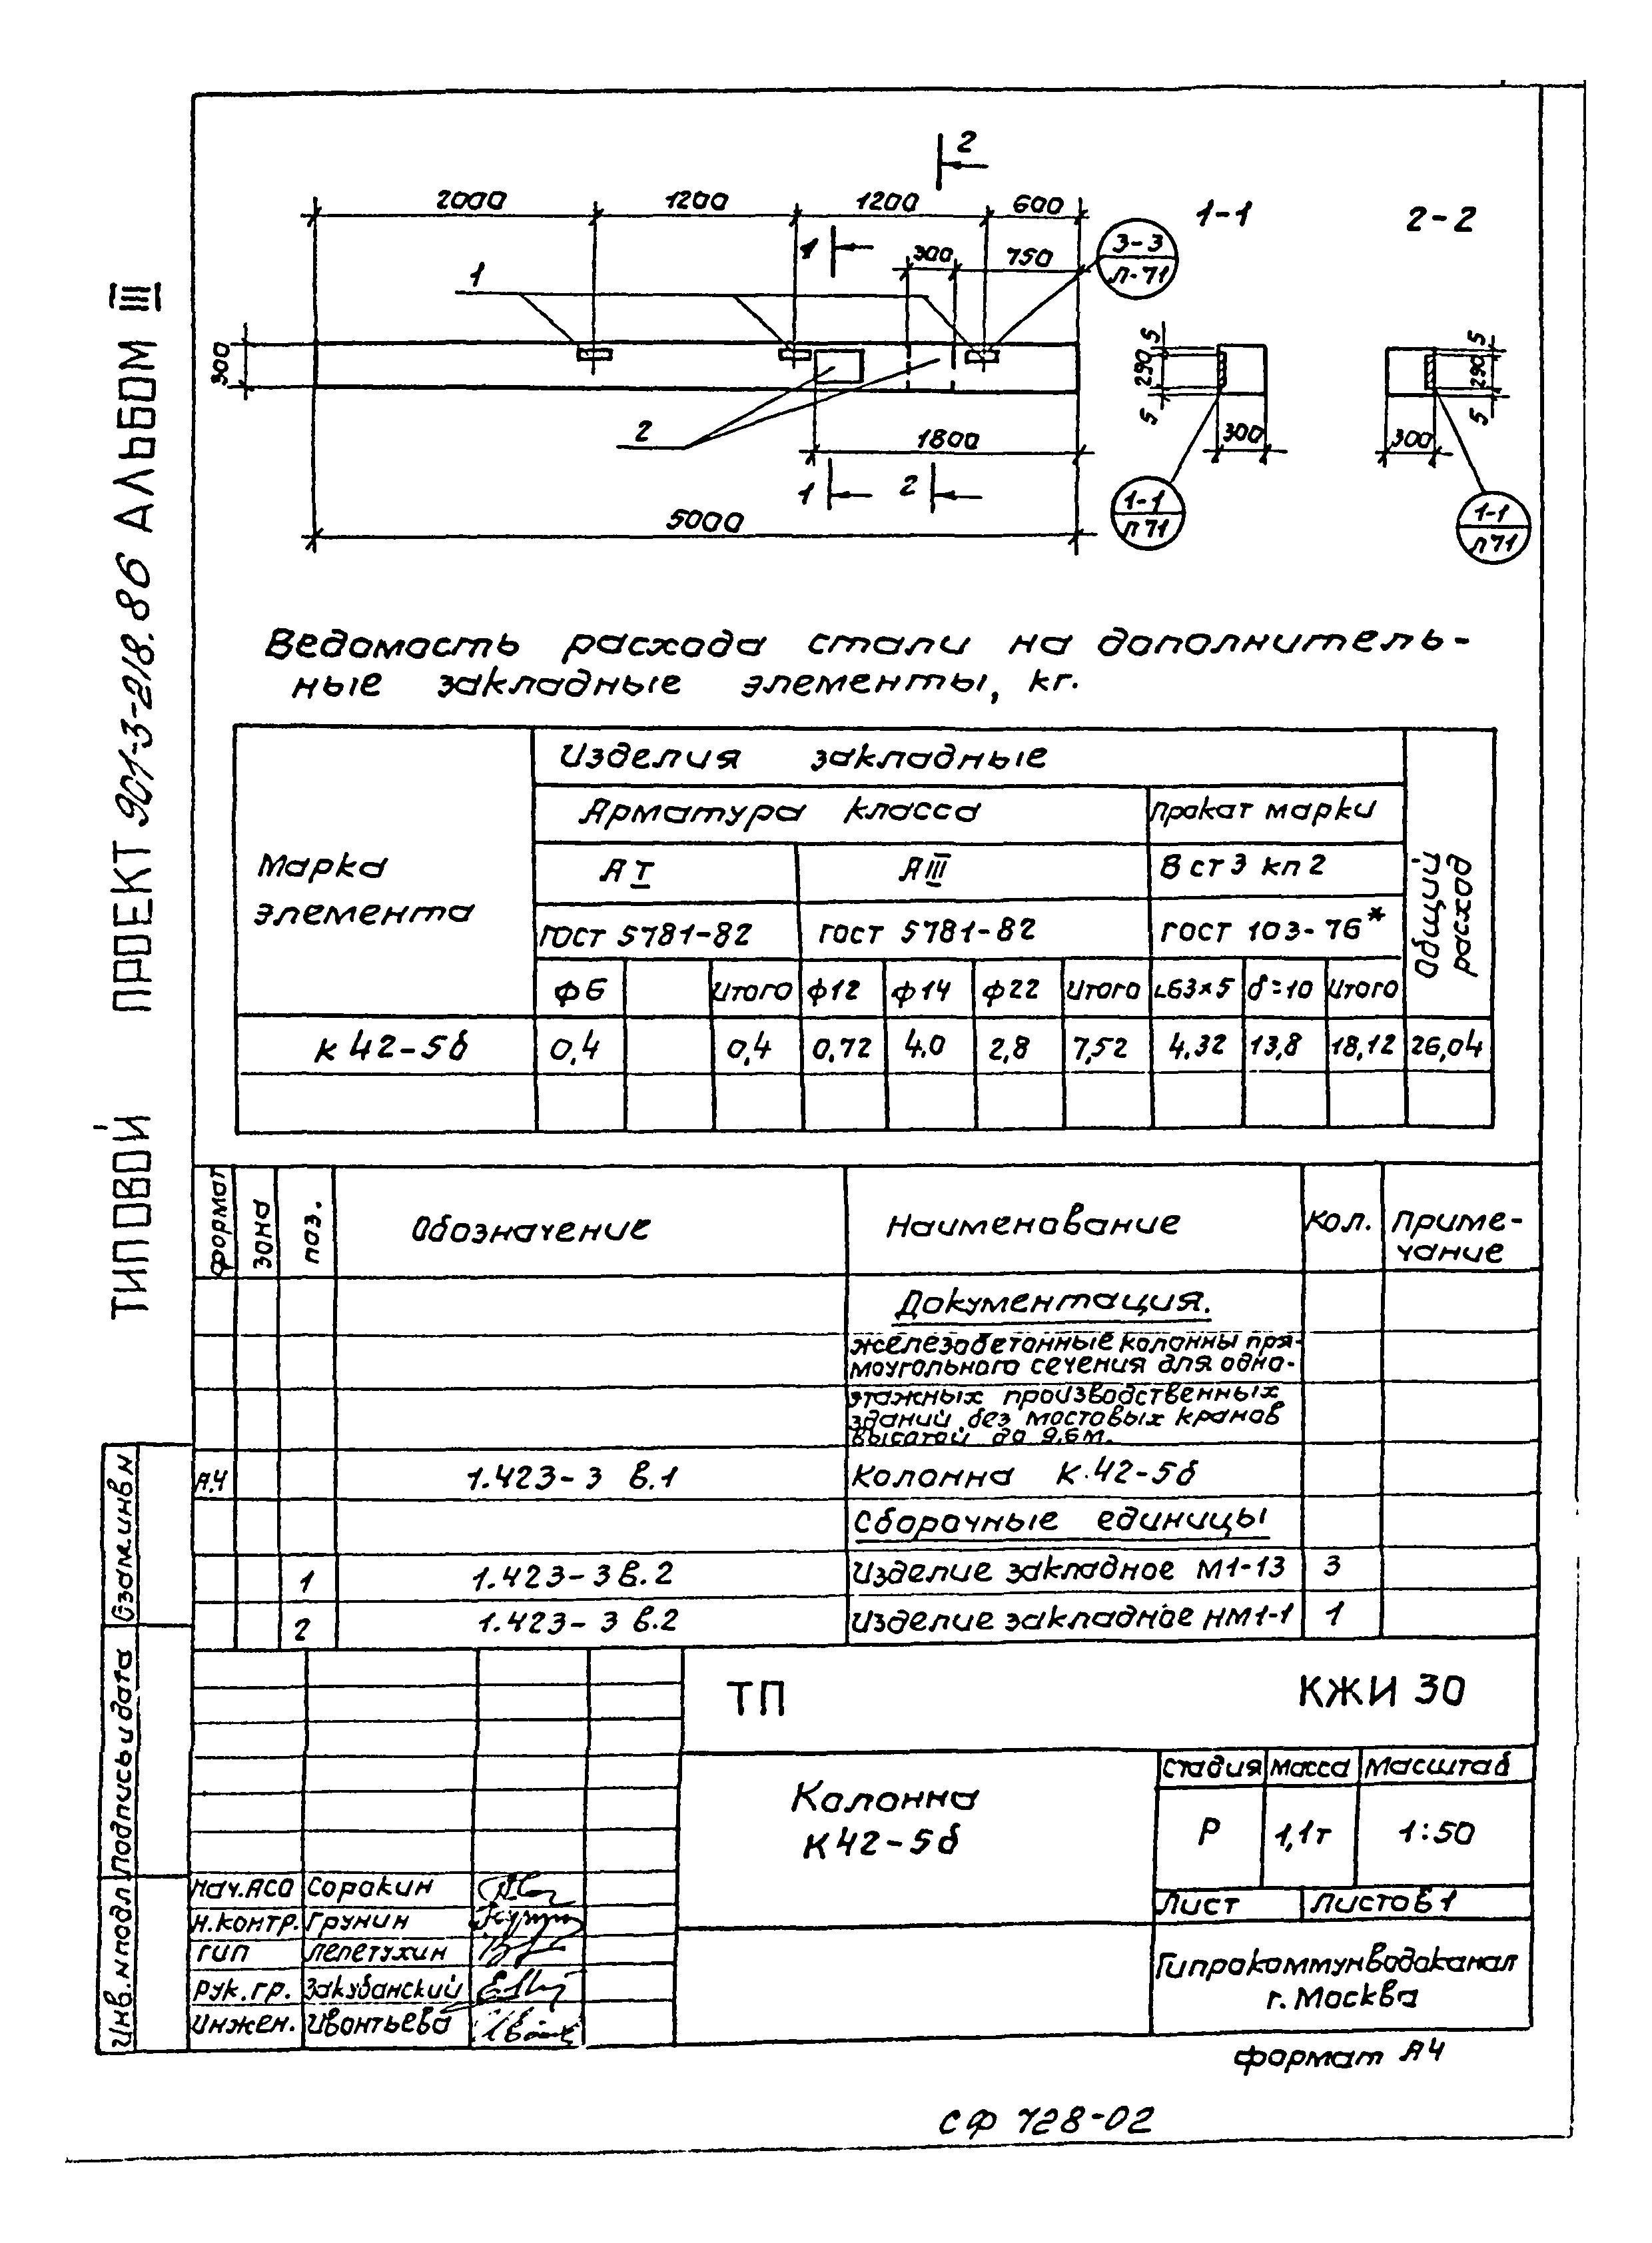 ТИПОВОЙ ПРОЕКТ 901-3-218.86 АЛЬБОМ III
2
2000 1200 1200 600
1-1 2-2
1
300 750
3-3
Л-71
1
300
5 290 5
5 290 5
2
1800
300
300
1 2
5000
1-1
Л71
1-1
Л71
Ведомость расхода стали на дополнитель-
ные закладные элементы, кг.
Марка
элемента
Изделия закладные
Арматура класса
Прокат марки
Общий
расход
А I
А III
В ст 3 кп 2
ГОСТ 5781-82
ГОСТ 5781-82
ГОСТ 103-76*
ф6 Итого ф12 ф14 ф22 Итого L63×5 δ=10 Итого
К 42-5б 0,4 0,4 0,72 4.0 2,8 7,52 4.32 13,8 18,12 26,04
Формат Зона Поз. Обозначение Наименование Кол. Приме-
чание
Документация.
железобетонные колонны пря-
моугольного сечения для одно-
этажных производственных
зданий без мостовых кранов
высотой до 9,6 м.
А.4 1.423-3 в.1 Колонна К.42-5б
Сборочные единицы
1 1.423-3 в.2 Изделие закладное М1-13 3
2 1.423-3 в.2 Изделие закладное НМ1-1 1
Взам.инв.N
Подпись и дата
Инв.N подл
ТП КЖИ 30
Колонна
К 42-5б
Стадия Масса Масштаб
Р 1,1т 1:50
Лист Листов 1
Нач.АСО Сорокин
Н.контр. Грунин
ГИП Лепетухин
Рук.гр. Закубанский
Инжен. Ивонтьева
Гипрокоммунводоканал
г. Москва
формат А4
СФ 728-02